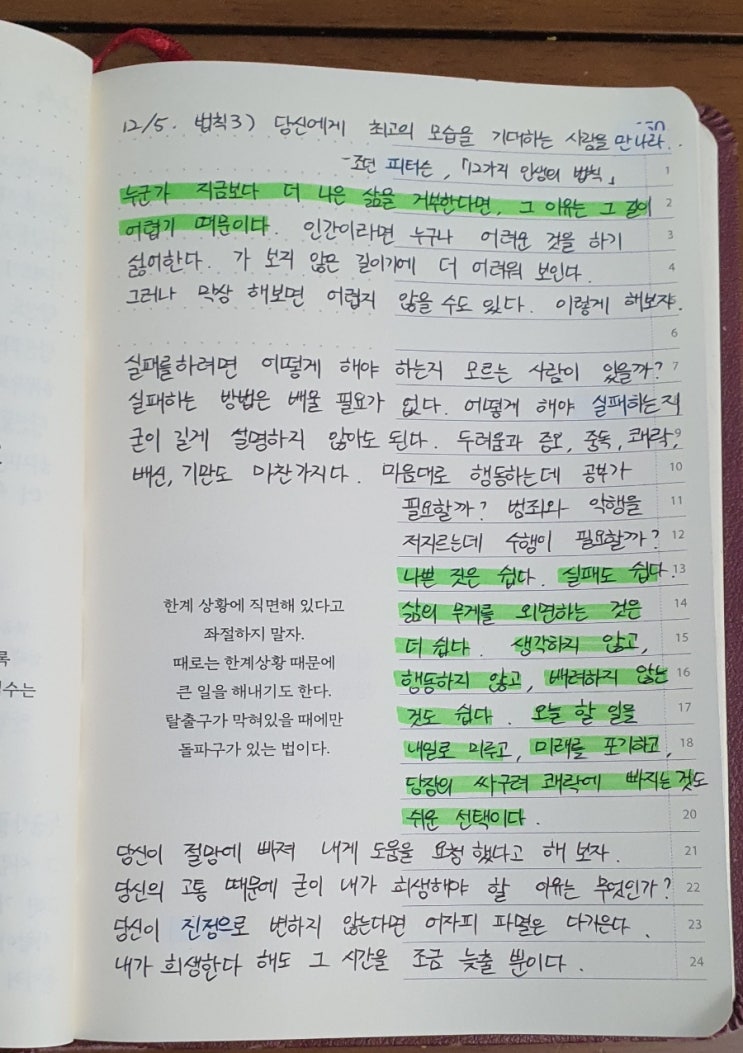 12/5. 법칙3) 당신에게 최고의 모습을 기대하는 사람을 만나라.
-조던 피터슨, 「12가지 인생의 법칙」
1
누군가 지금보다 더 나은 삶을 거부한다면, 그 이유는 그 길이
2
어렵기 때문이다. 인간이라면 누구나 어려운 것을 하기
3
싫어한다. 가 보지 않은 길이기에 더 어려워 보인다.
4
그러나 막상 해보면 어렵지 않을 수도 있다. 이렇게 해보자.
6
실패를하려면 어떻게 해야 하는지 모르는 사람이 있을까?
7
실패하는 방법은 배울 필요가 없다. 어떻게 해야 실패하는지
굳이 길게 설명하지 않아도 된다. 두려움과 증오, 중독, 쾌락,
9
배신, 기만도 마찬가지다. 마음대로 행동하는데 공부가
10
필요할까? 범죄와 악행을
11
저지르는데 수행이 필요할까?
12
나쁜 짓은 쉽다. 실패도 쉽다.
13
삶의 무게를 외면하는 것은
14
더 쉽다. 생각하지 않고,
15
행동하지 않고, 배려하지 않는
16
것도 쉽다. 오늘 할 일을
17
내일로 미루고, 미래를 포기하고,
18
당장의 싸구려 쾌락에 빠지는것도
쉬운 선택이다.
20
한계 상황에 직면해 있다고
좌절하지 말자.
때로는 한계상황 때문에
큰 일을 해내기도 한다.
탈출구가 막혀있을 때에만
돌파구가 있는 법이다.
당신이 절망에 빠져 내게 도움을 요청했다고 해 보자.
21
당신의 고통 때문에 굳이 내가 희생해야 할 이유는 무엇인가?
22
당신이 진정으로 변하지 않는다면 어차피 파멸은 다가온다.
23
내가 희생한다 해도 그 시간을 조금 늦출 뿐이다.
24